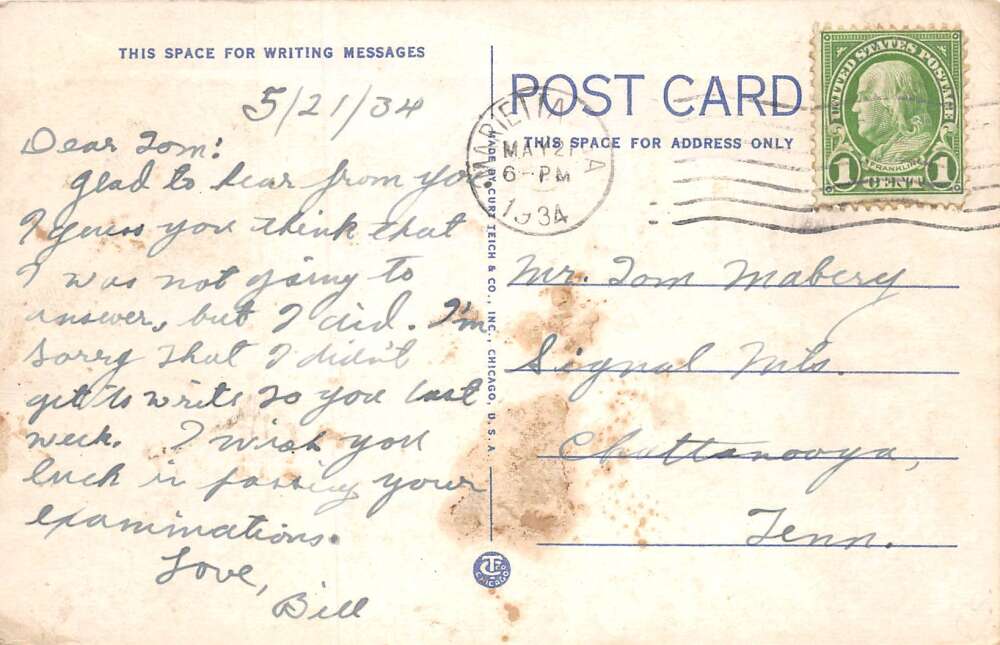 THIS SPACE FOR WRITING MESSAGES
5/21/34
Dear Tom:
Glad to hear from you
I guess you think that
I was not going to
answer, but I did. I'm
sorry that I didn't
get to write to you last
week. I wish you
luck in passing your
examinations.
Love,
Bill
MADE BY CURT TEICH & CO., INC., CHICAGO, U.S.A
CHICAGO
POST CARD
THIS SPACE FOR ADDRESS ONLY
MARIETTA
MAY 21
6-PM
1934
UNITED STATES POSTAGE
FRANKLIN
1 CENT 1
Mr. Tom Mabery
Signal Mts.
Chattanooga,
Tenn.